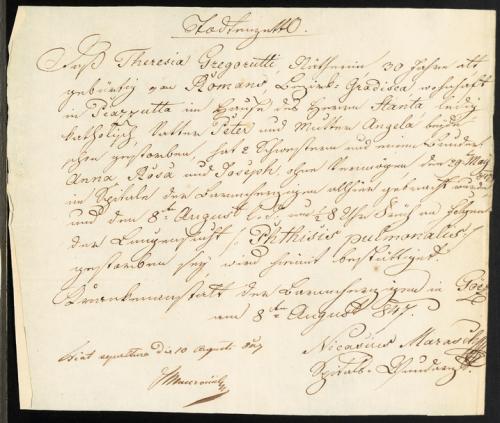 Todtenzettl.
Daß Theresia Gregorutti Nätherin 30 Jahre alt
gebürtig von Romans, Bezirk: Gradisca wohnhaft
in Piazzutta im Hause des Herrn ledig
katholisch, Vatter Peter und Mutter Angela beide
schon gestorben, hat 2 Schwestern und einen Bruder
Anna, Rosa und Joseph, ohne Vermögen den 29 May
im Spitale der Barmherzigen allhier gebracht worden
und den 8ten August l. J. um 8 Uhr Früh an Folgen
der Lungensucht /: Phthisis pulmonalis :/
gestorben sey, wird hiemit bestättiget.
Krankenanstalt der Barmherzigen in Goerz
am 8ten August 847.
Fiat sepultura Die 10 Augusti 847
Nicasius
Spitals-Wundarzt